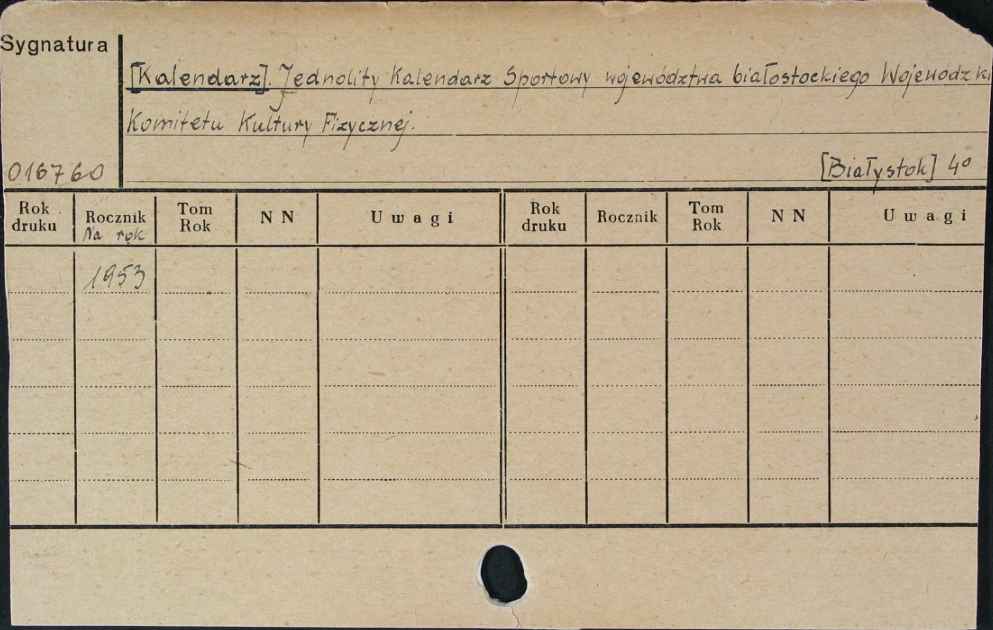 Sygnatura
[Kalendarz]. Jednolity Kalendarz Sportowy województwa białostockiego Wojewódzki
Komitetu Kultury Fizycznej.
016760
[Białystok] 4º
Rok druku Rocznik Na rok Tom Rok N N Uwagi Rok druku Rocznik Tom Rok N N Uwagi
1953